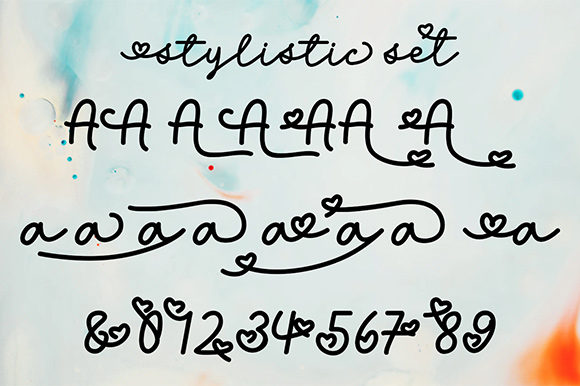 stylistic set
AA A A AA A
a a a a a a a a
& 012 34 567 89